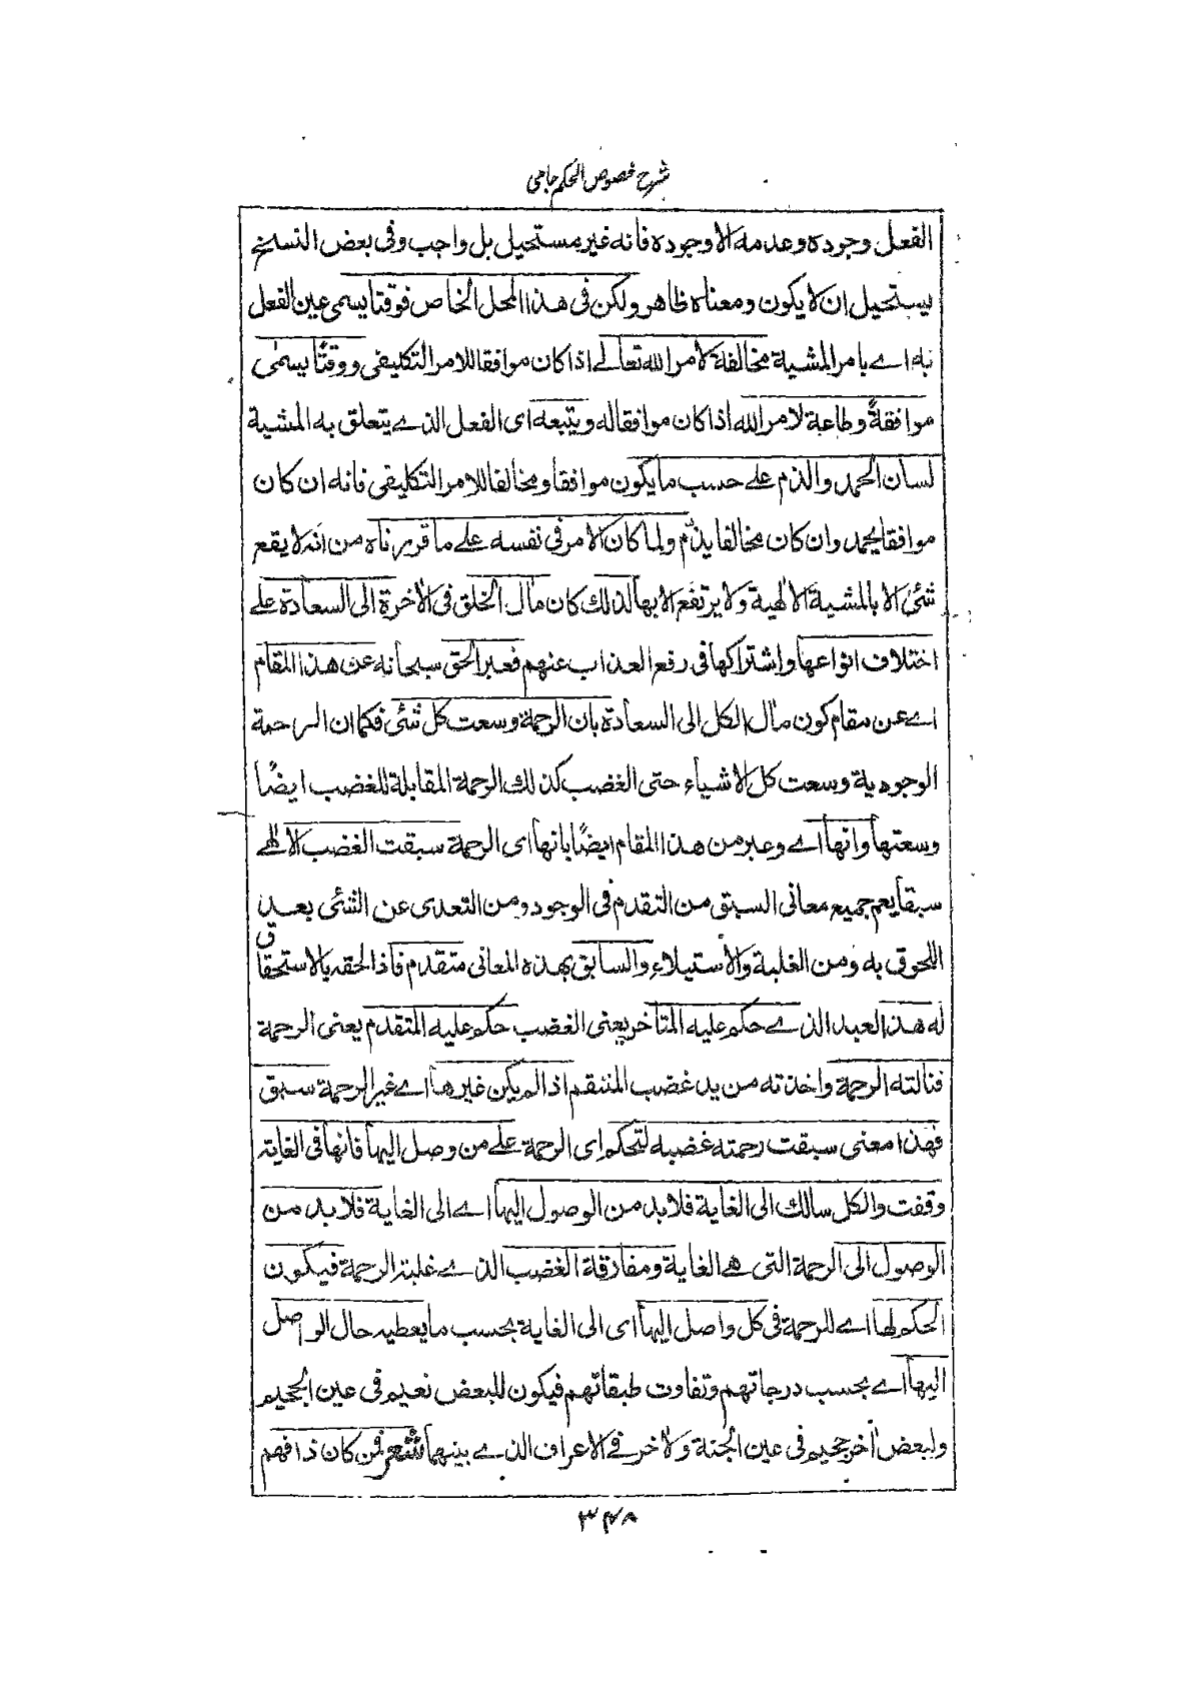 شرح فصوص الحكم جامى
الفعل وجوده وعدمه الا وجوده فانه غير مستحيل بل واجب وفى بعض النسخ
يستحيل ان لا يكون ومعناه ظاهر ولكن فى هذا المحل الخاص فوقتا يسمى عين الفعل
به اے بامر المشية مخالفة لامر الله تعالے اذا كان موافقا للامر التكليفى ووقتًا يسمٰى
موافقةً وطاعة لامر الله اذا كان موافقا له ويتبعه اى الفعل الذے يتعلق به المشية
لسان الحمد والذم علے حسب ما يكون موافقا ومخالفا للامر التكليفى فانه ان كان
موافقا يحمد وان كان مخالفا يذم ولما كان الامر فى نفسه علے ما قررناه من انه لا يقع
شئ الا بالمشية الالهية ولا يرتفع الا بها لذلك كان مآل الخلق فى الآخرة الى السعادة علے
اختلاف انواعها واشتراكها فى رفع العذاب عنهم فعبر الحق سبحانه عن هذا المقام
اے عن مقام كون مآل الكل الى السعادة بان الرحمة وسعت كل شئ فكما ان الرحمة
الوجودية وسعت كل الاشياء حتى الغضب كذلك الرحمة المقابلة للغضب ايضًا
وسعتها وانها اے وعبر من هذا المقام ايضًا بانها اى الرحمة سبقت الغضب الالٰهے
سبقا يعم جميع معانى السبق من التقدم فى الوجود ومن التعدى عن الشئ بعد
اللحوق به ومن الغلبة والاستيلاء والسابق بهذه المعانى متقدم فاذا لحقه بالاستحقاق
له هذا العبد الذے حكم عليه المتاخر يعنى الغضب حكم عليه المتقدم يعنى الرحمة
فنالته الرحمة واخذته من يد غضب المنتقم اذ الم يكن غيرها اے غير الرحمة سبق
فهذا معنى سبقت رحمته غضبه لتحكم اى الرحمة علے من وصل اليها فانها فى الغاية
وقفت والكل سالك الى الغاية فلا بد من الوصول اليها اے الى الغاية فلا بد من
الوصول الى الرحمة التى هے الغاية ومفارقة الغضب الذے غلبته الرحمة فيكون
الحكم لها اے للرحمة فى كل واصل اليها اى الى الغاية بحسب ما يعطيه حال الواصل
اليها اے بحسب درجاتهم وتفاوت طبقاتهم فيكون للبعض نعيم فى عين الجحيم
ولبعض آخر جحيم فى عين الجنة ولآخر فے الاعراف الذے بينهما شعر فمن كان ذا فهم
٣٤٨